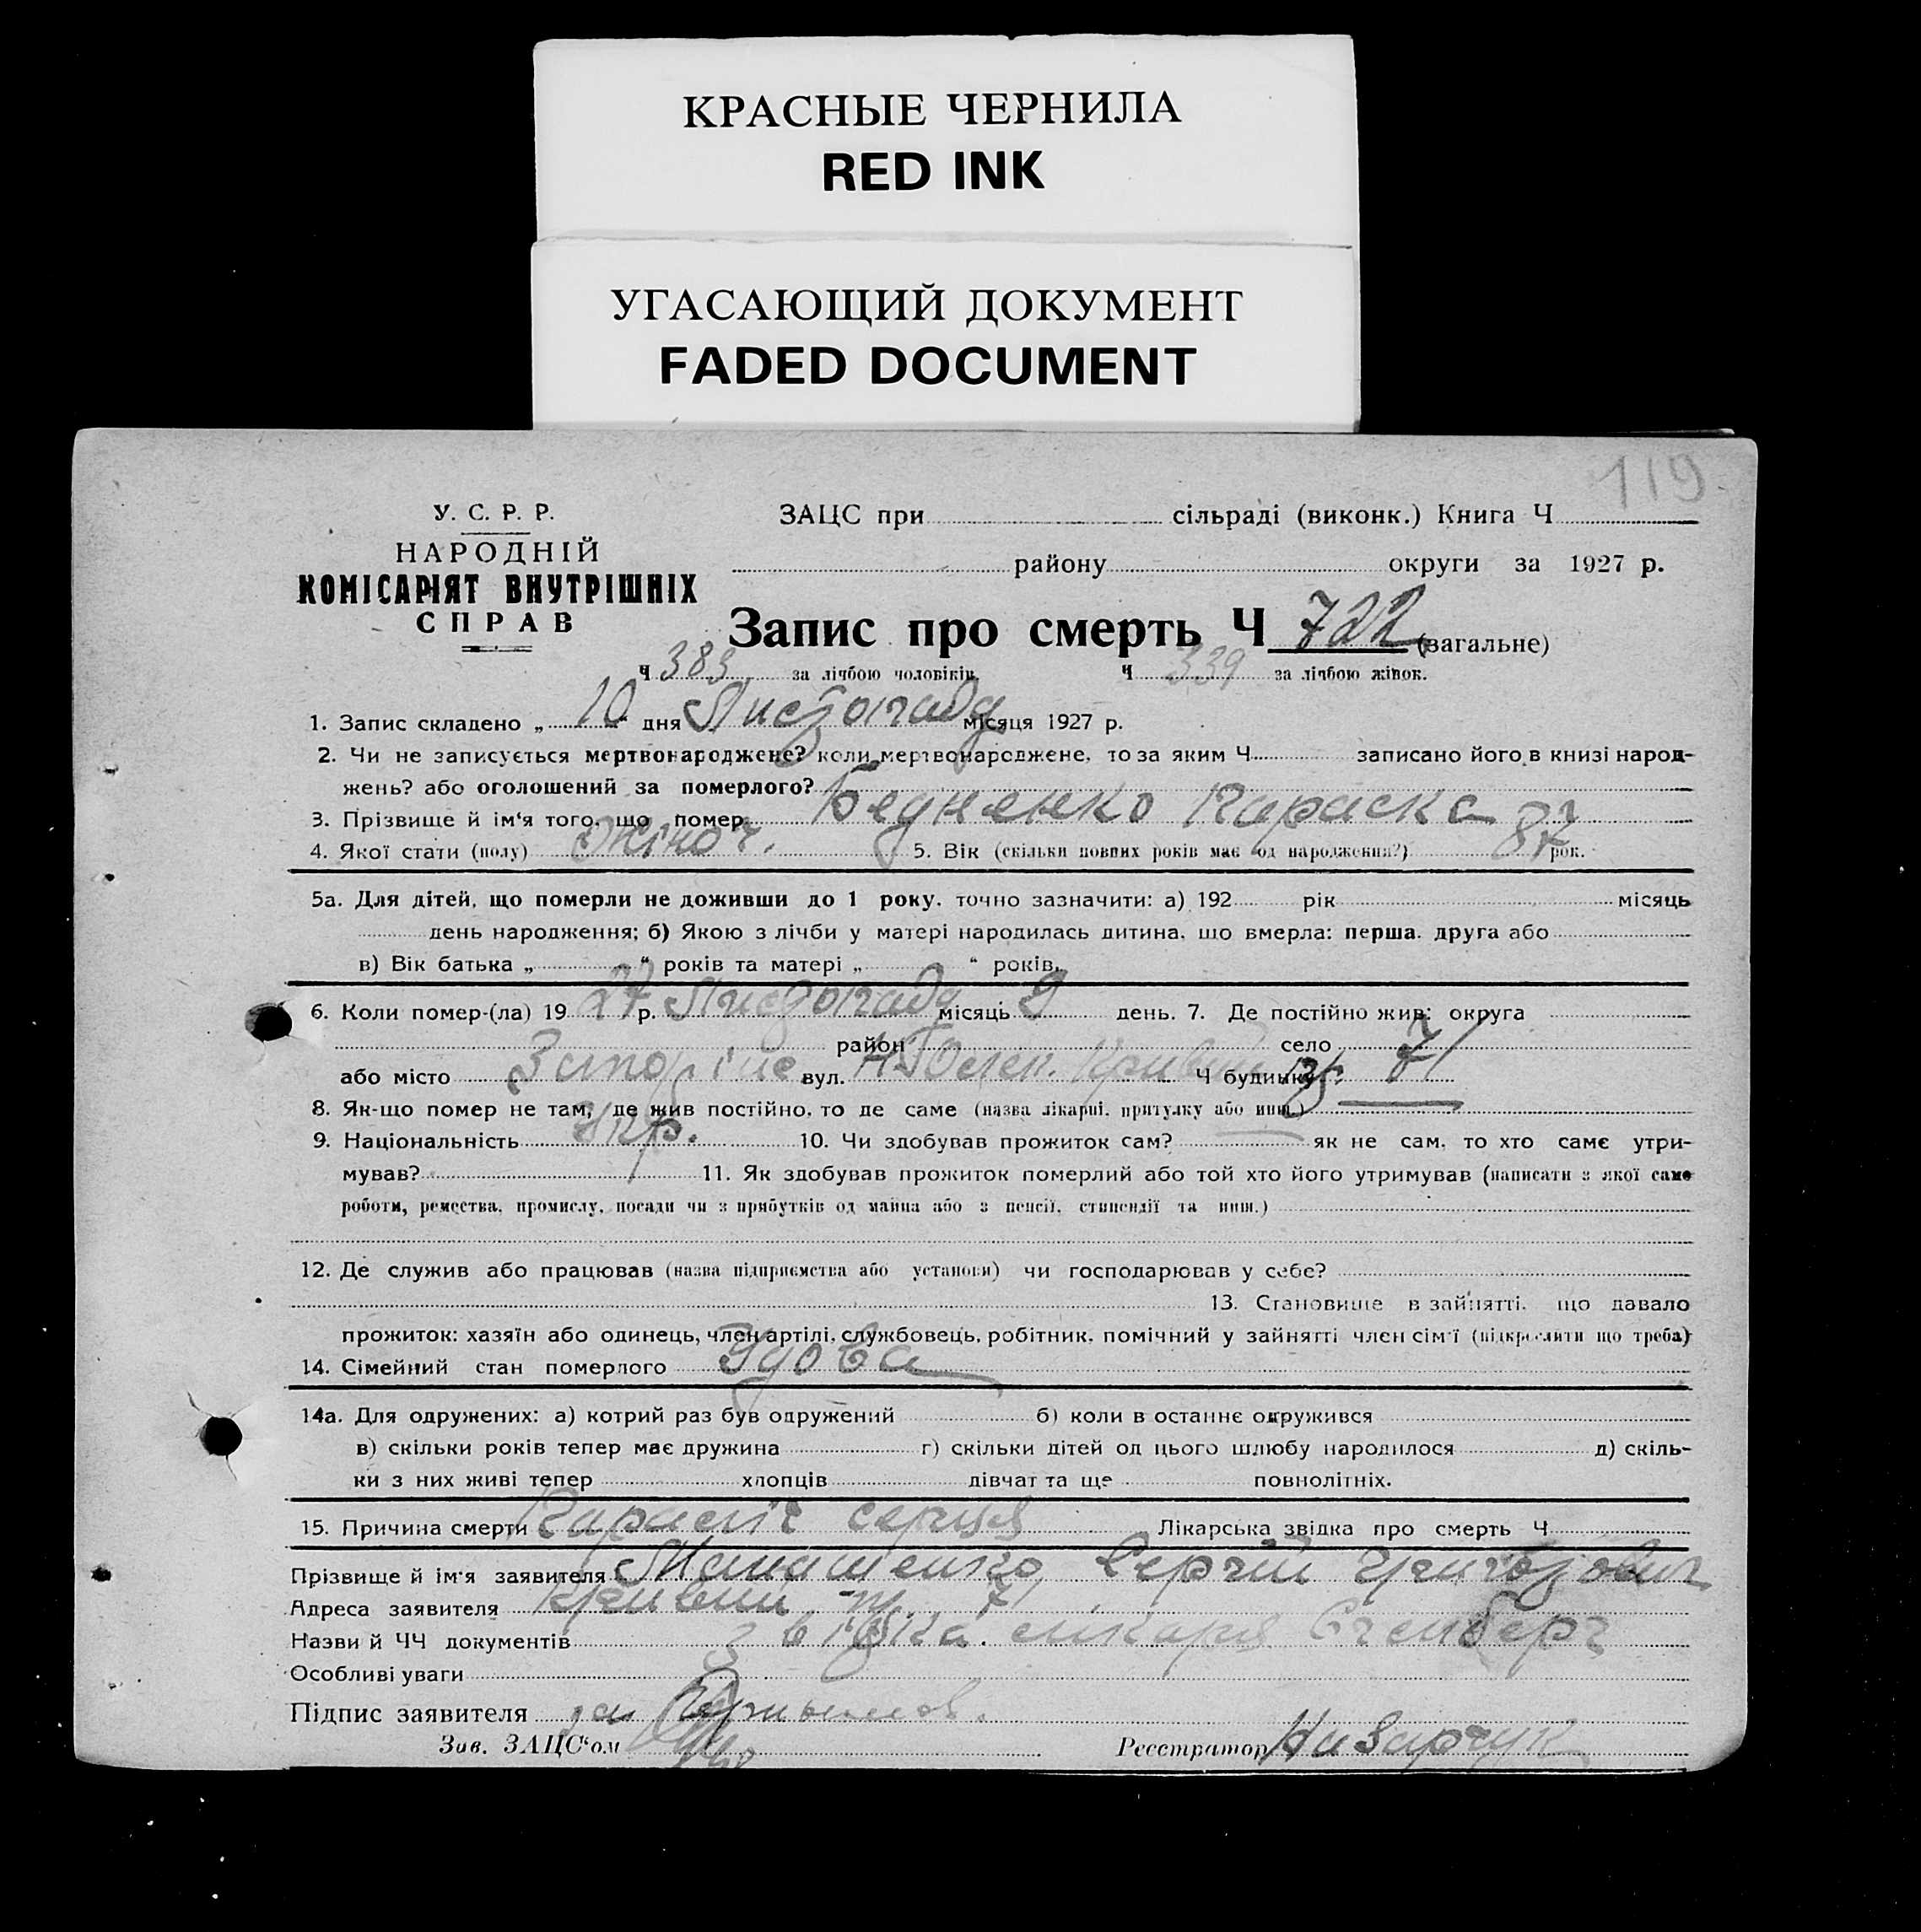 КРАСНЫЕ ЧЕРНИЛА
RED INK
УГАСАЮЩИЙ ДОКУМЕНТ
FADED DOCUMENT
119
У. С. Р. Р.
НАРОДНІЙ
КОМІСАРІЯТ ВНУТРІШНІХ
СПРАВ
ЗАЦС при сільраді (виконк.) Книга Ч
району округи за 1927 р.
Запис про смерть Ч 722 (загальне)
Ч 383 за лічбою чоловіків. Ч 339 за лічбою жінок.
1. Запис складено „ 10 “ дня Листопаду місяця 1927 р.
2. Чи не записується мертвонароджене? коли мертвонароджене, то за яким Ч. записано його в книзі народ-
жень? або оголошений за померлого?
3. Прізвище й ім'я того, що помер Бедненко Параска
4. Якої стати (полу) Жіноч. 5. Вік (скільки повних років має од народження?) 87 рок.
5а. Для дітей, що померли не доживши до 1 року, точно зазначити: а) 192 рік місяць
день народження; б) Якою з лічби у матері народилась дитина, що вмерла: перша, друга або
в) Вік батька „ “ років та матері „ “ років.
6. Коли помер-(ла) 19 27 р. Листопаду місяць 9 день. 7. Де постійно жив: округа
район село
або місто вул. Ч будинку 71
8. Як-що помер не там, де жив постійно, то де саме (назва лікарні, притулку або инш.)
9. Національність Укр. 10. Чи здобував прожиток сам? як не сам, то хто саме утри-
мував? 11. Як здобував прожиток померлий або той хто його утримував (написати з якої саме
роботи, ремества, промислу, посади чи з прибутків од майна або з пенсії, стипендії та инш.)
12. Де служив або працював (назва підприємства або установи) чи господарював у себе?
13. Становище в зайнятті, що давало
прожиток: хазяїн або одинець, член артілі, службовець, робітник, помічний у зайнятті член сім'ї (підкреслити що треба)
14. Сімейний стан померлого Удова
14а. Для одружених: а) котрий раз був одружений б) коли в останнє одружився
в) скільки років тепер має дружина г) скільки дітей од цього шлюбу народилося д) скіль-
ки з них живі тепер хлопців дівчат та ще повнолітніх.
15. Причина смерти Параліч серця Лікарська звідка про смерть Ч
Прізвище й ім'я заявителя Сергій
Адреса заявителя 71
Назви й ЧЧ документів лікаря
Особливі уваги
Підпис заявителя за
Зав. ЗАЦС'ом Реєстратор Назарчук